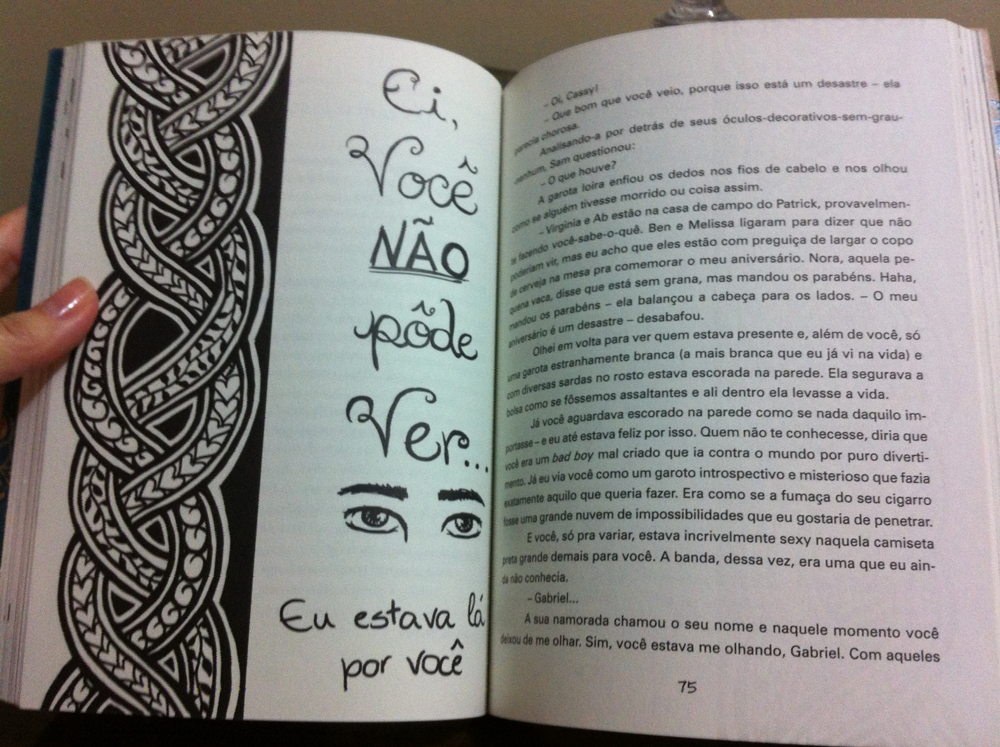 Ei,
Você
NÃO
pôde
Ver...
Eu estava lá
por você
– Oi, Cassy!
– Que bom que você veio, porque isso está um desastre – ela
parecia chorosa.
Analisando-a por detrás de seus óculos-decorativos-sem-grau-
nenhum, Sam questionou:
– O que houve?
A garota loira enfiou os dedos nos fios de cabelo e nos olhou
como se alguém tivesse morrido ou coisa assim.
– Virginia e Ab estão na casa de campo do Patrick, provavelmen-
te fazendo você-sabe-o-quê. Ben e Melissa ligaram para dizer que não
poderiam vir, mas eu acho que eles estão com preguiça de largar o copo
de cerveja na mesa pra comemorar o meu aniversário. Nora, aquela pe-
quena vaca, disse que está sem grana, mas mandou os parabéns. Haha,
mandou os parabéns – ela balançou a cabeça para os lados. – O meu
aniversário é um desastre – desabafou.
Olhei em volta para ver quem estava presente e, além de você, só
uma garota estranhamente branca (a mais branca que eu já vi na vida) e
com diversas sardas no rosto estava escorada na parede. Ela segurava a
bolsa como se fôssemos assaltantes e ali dentro ela levasse a vida.
Já você aguardava escorado na parede como se nada daquilo im-
portasse – e eu até estava feliz por isso. Quem não te conhecesse, diria que
você era um bad boy mal criado que ia contra o mundo por puro diverti-
mento. Já eu via você como um garoto introspectivo e misterioso que fazia
exatamente aquilo que queria fazer. Era como se a fumaça do seu cigarro
fosse uma grande nuvem de impossibilidades que eu gostaria de penetrar.
E você, só pra variar, estava incrivelmente sexy naquela camiseta
preta grande demais para você. A banda, dessa vez, era uma que eu ain-
da não conhecia.
– Gabriel...
A sua namorada chamou o seu nome e naquele momento você
deixou de me olhar. Sim, você estava me olhando, Gabriel. Com aqueles
75